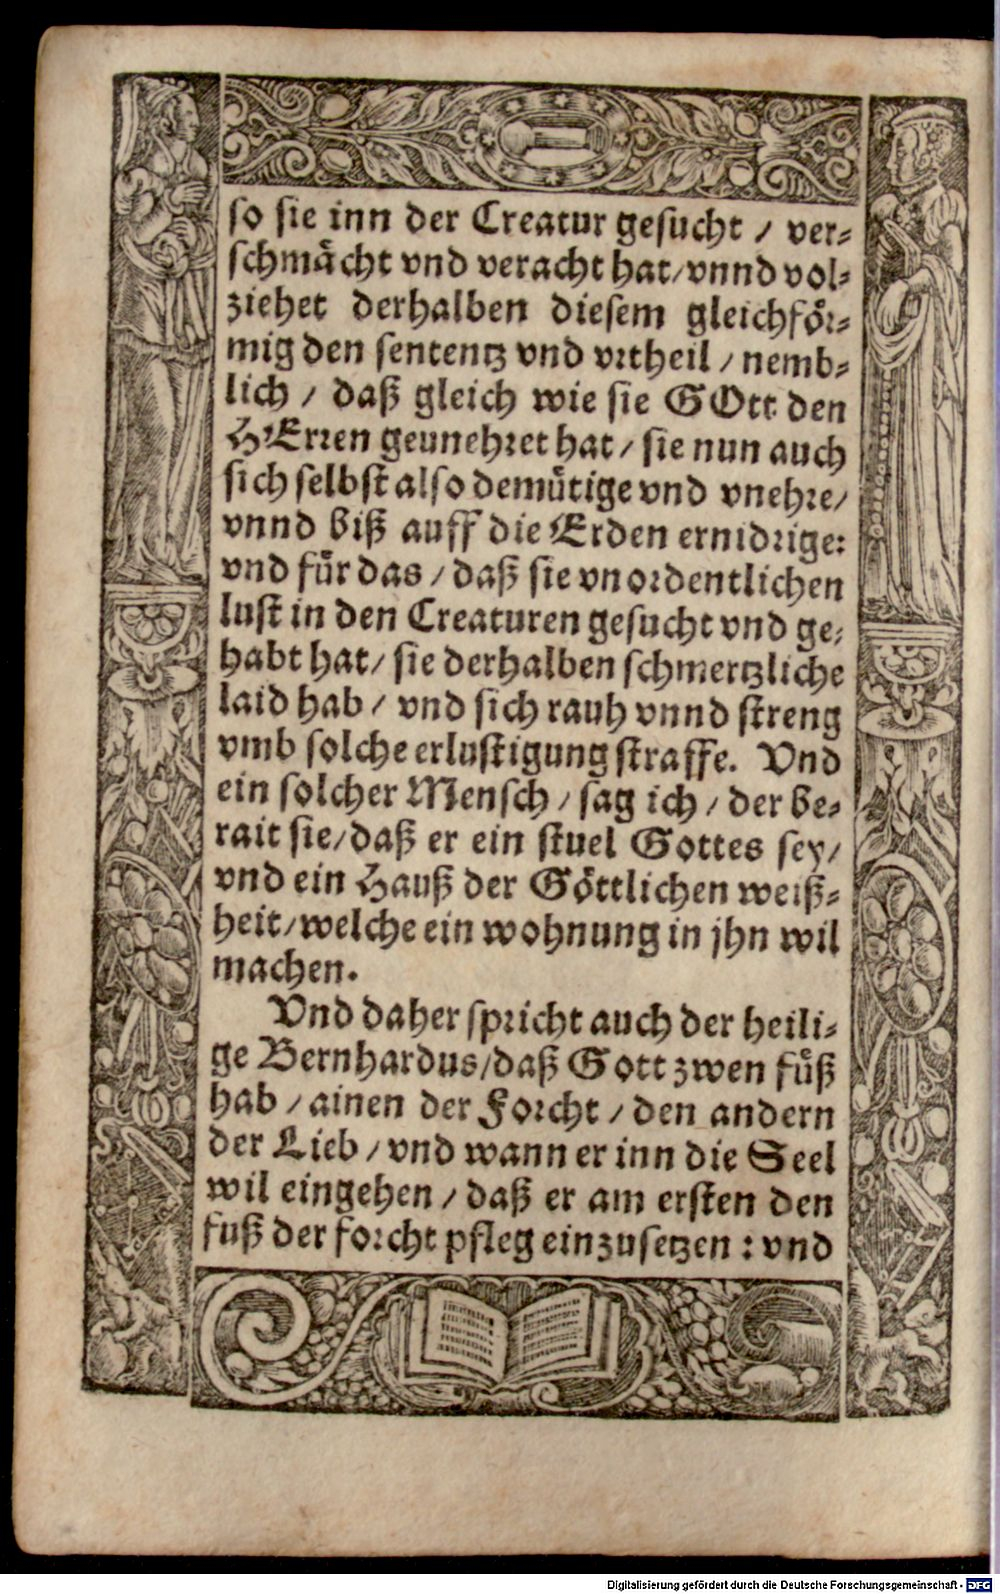 so sie inn der Creatur gesucht / ver⸗
schmächt vnd veracht hat / vnnd vol⸗
ziehet derhalben diesem gleichför⸗
mig den sententz vnd vrtheil / nemb⸗
lich / daß gleich wie sie GOtt den
HErren geunehret hat / sie nun auch
sich selbst also demütige vnd vnehre /
vnnd biß auff die Erden ernidrige:
vnd für das / daß sie vnordentlichen
lust in den Creaturen gesucht vnd ge⸗
habt hat / sie derhalben schmertzliche
laid hab / vnd sich rauh vnnd streng
vmb solche erlustigung straffe. Vnd
ein solcher Mensch / sag ich / der be⸗
rait sie / daß er ein stuel Gottes sey /
vnd ein Hauß der Göttlichen weiß⸗
heit / welche ein wohnung in jhn wil
machen.
Vnd daher spricht auch der heili⸗
ge Bernhardus / daß Gott zwen füß
hab / ainen der Forcht / den andern
der Lieb / vnd wann er inn die Seel
wil eingehen / daß er am ersten den
fuß der forcht pfleg einzusetzen : vnd
Digitalisierung gefördert durch die Deutsche Forschungsgemeinschaft - DFG